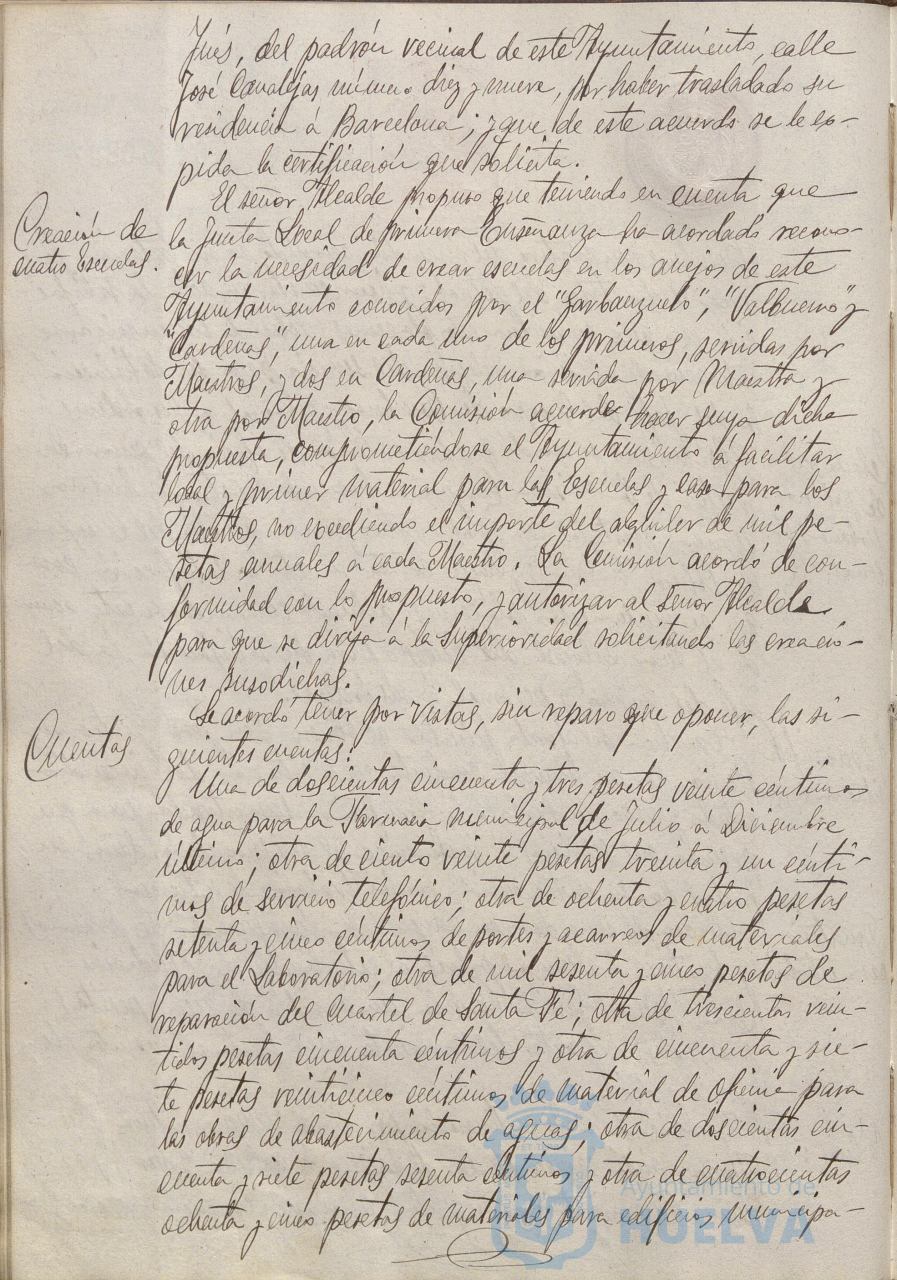 Inés, del padrón vecinal de este Ayuntamiento, calle
José Canalejas número diez y nueve, por haber trasladado su
residencia á Barcelona; y que de este acuerdo se le ex-
pida la certificación que solicita.
El señor Alcalde propuso que teniendo en cuenta que
Creación de
cuatro Escuelas.
la Junta Local de primera Enseñanza ha acordado recono-
cer la necesidad de crear escuelas en los anejos de este
Ayuntamiento conocidos por el "Garbanzuelo", "Valbueno" y
"Cardeñas", una en cada uno de los primeros, servidas por
Maestros, y dos en Cardeñas, una servida por Maestra y
otra por Maestro, la Comisión acuerde hacer suya dicha
propuesta, comprometiéndose el Ayuntamiento á facilitar
local y primer material para las Escuelas y casa para los
Maestros, no excediendo el importe del alquiler de mil pe-
setas anuales á cada Maestro. La Comisión acordó de con-
formidad con lo propuesto, y autorizar al Señor Alcalde
para que se dirija á la Superioridad solicitando las creacio-
nes susodichas.
Cuentas
Se acordó tener por vistas, sin reparo que oponer, las si-
guientes cuentas:
Una de doscientas cincuenta y tres pesetas veinte céntimos
de agua para la Farmacia municipal de Julio á Diciembre
último; otra de ciento veinte pesetas treinta y un cénti-
mos de servicio telefónico; otra de ochenta y cuatro pesetas
setenta y cinco céntimos de portes y acarreos de materiales
para el Laboratorio; otra de mil sesenta y cinco pesetas de
reparación del Cuartel de Santa Fé; otra de trescientas vein-
tidos pesetas cincuenta céntimos y otra de cincuenta y sie-
te pesetas veinticinco céntimos de material de oficina para
las obras de abastecimiento de aguas; otra de doscientas cin-
cuenta y siete pesetas sesenta céntimos y otra de cuatrocientas
ochenta y cinco pesetas de materiales para edificios municipa-
Ayuntamiento de
HUELVA